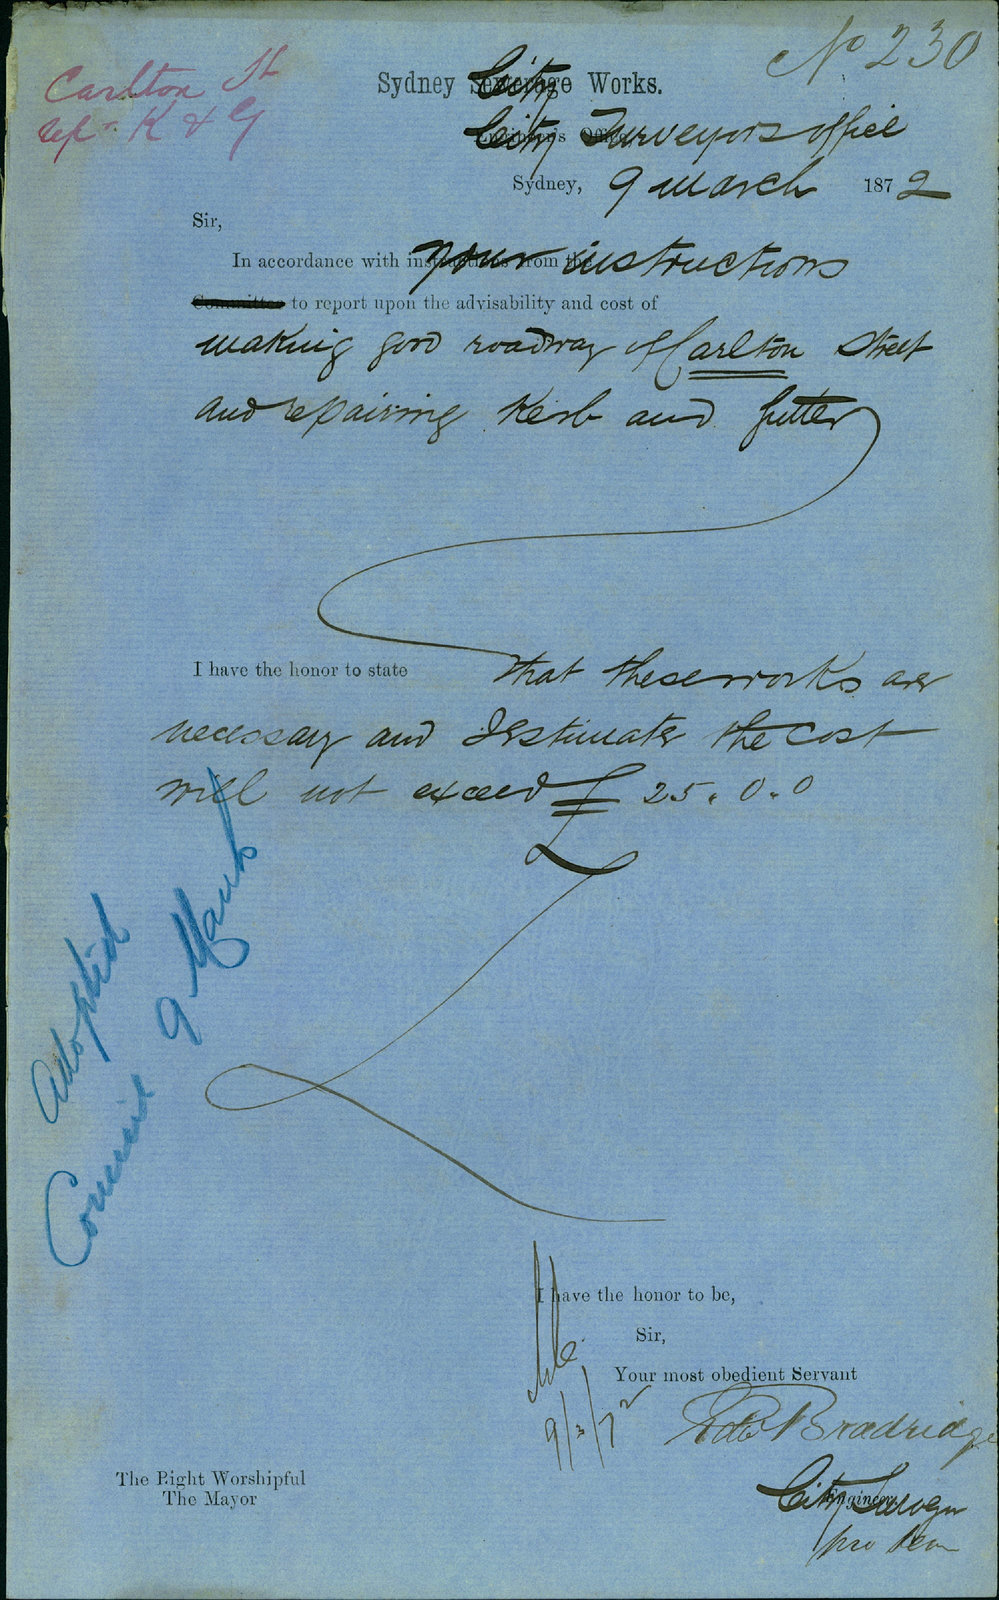 No 230
Carlton St
rep K & G
Sydney City Works.
City Surveyors office
Sydney, 9 March 1872
Sir,
In accordance with your instructions
to report upon the advisability and cost of
making good roadway of Carlton Street
and repairing Kerb and Gutter
I have the honor to state that these works are
necessary and I estimate the cost
will not exceed £25.0.0
Adopted
Council 9 March
I have the honor to be,
Sir,
Your most obedient Servant
9/3/72
Bradridge
City Surveyor
pro tem
The Right Worshipful
The Mayor